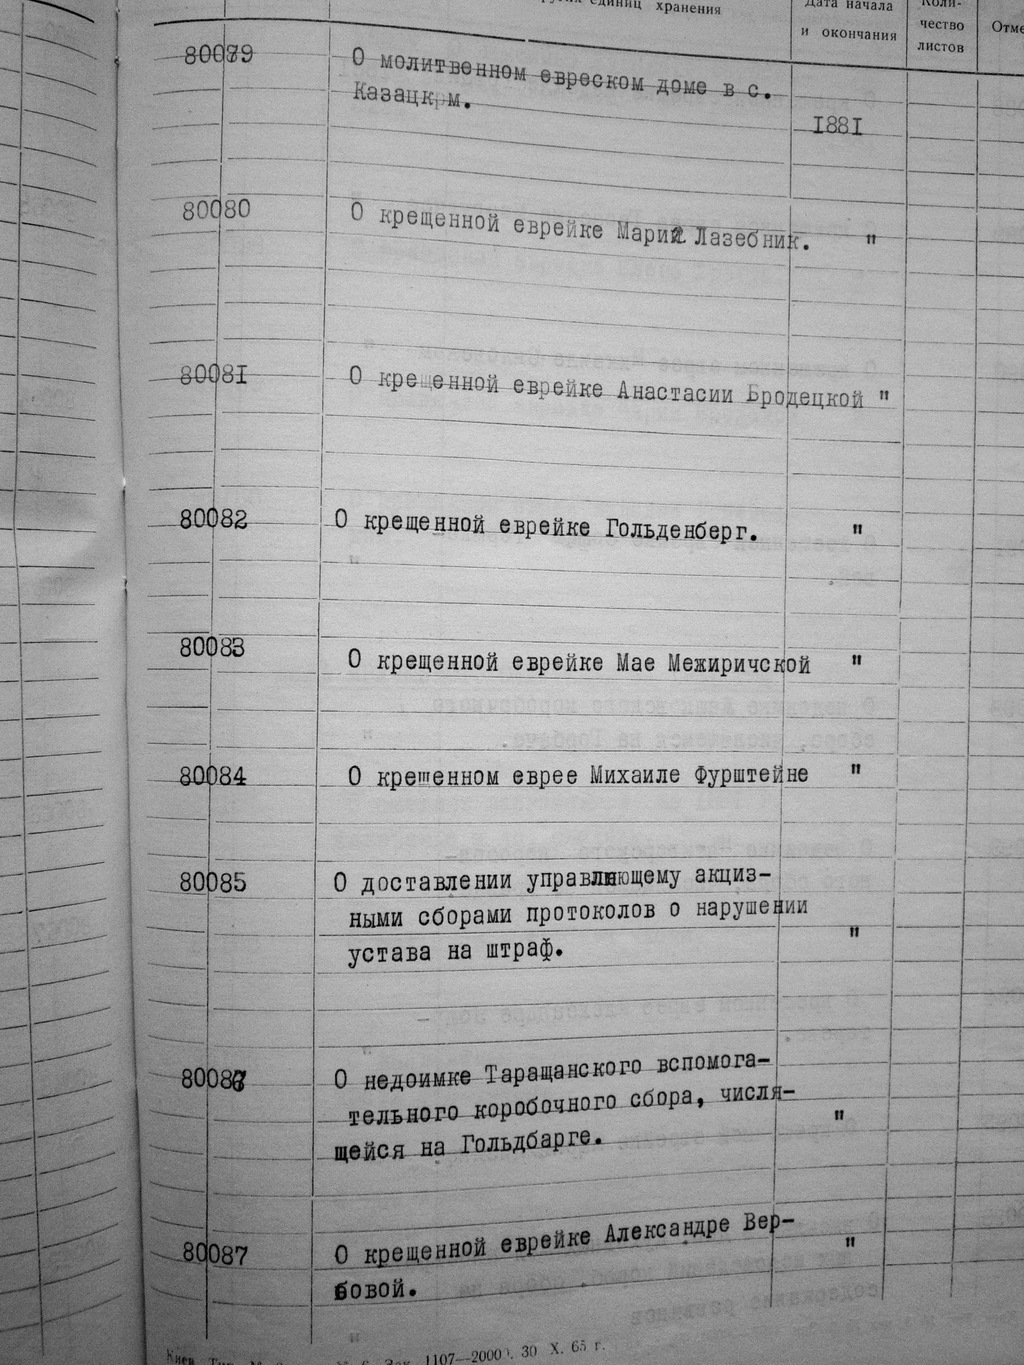 единиц хранения
Дата начала
и окончания
Коли-
чество
листов
Отме
80079 О молитвенном евреском доме в с.
Казацкрм.
1881
80080 О крещенной еврейке Марии Лазебник. "
80081 О крещенной еврейке Анастасии Бродецкой "
80082 О крещенной еврейке Гольденберг. "
80083 О крещенной еврейке Мае Межиричской "
80084 О крешенном еврее Михаиле Фурштейне "
80085 О доставлении управляющему акциз-
ными сборами протоколов о нарушении
устава на штраф. "
80086 О недоимке Таращанского вспомога-
тельного коробочного сбора, числя-
щейся на Гольдбарге. "
80087 О крещенной еврейке Александре Вер-
бовой. "
Зак. 1107—2000. 30 X. 65 г.